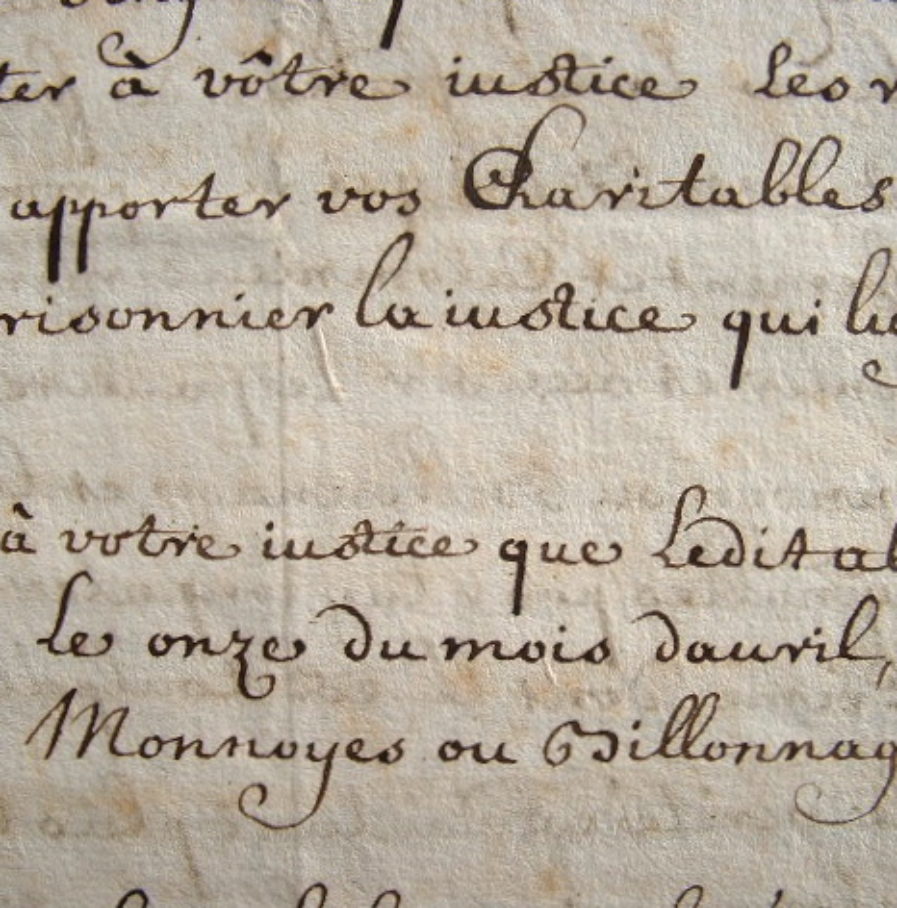 ter à vôtre iustice les r
apporter vos Charitables
risonnier la iustice qui luy
à votre iustice que Ledit al
Le onze du mois dauril,
Monnoyes ou Billonnag